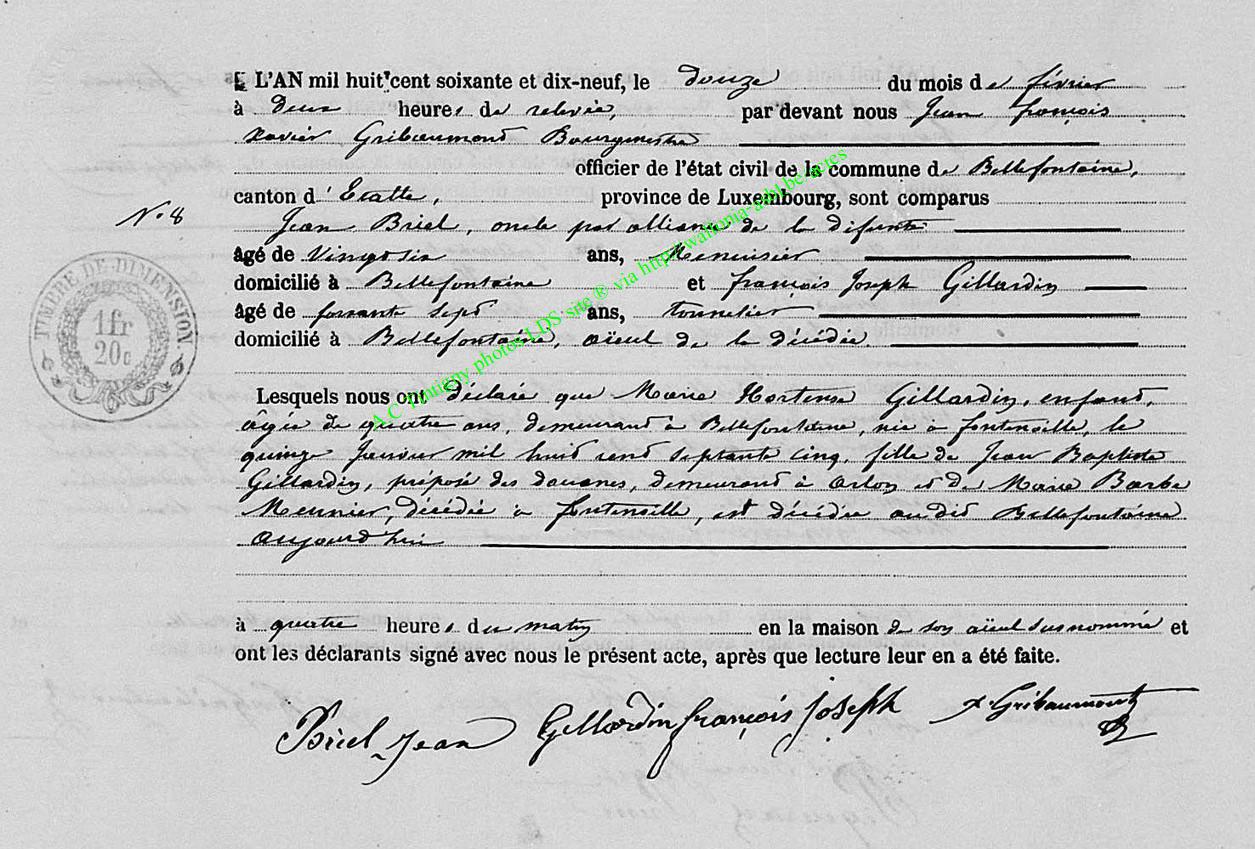 L'AN mil huit cent soixante et dix-neuf, le douze du mois de février
à deux heures de relevée, par devant nous Jean françois
Xavier Gribaumont Bourgmestre
officier de l'état civil de la commune de Bellefontaine,
canton d'Etalle, province de Luxembourg, sont comparus
N° 8
Jean Briel, oncle par alliance de la défunte
âgé de Vingt six ans, Menuisier
domicilié à Bellefontaine et françois Joseph Gillardin
âgé de soixante sept ans, tonnelier
domicilié à Bellefontaine, aïeul de la décédée.
TIMBRE DE DIMENSION
1 fr
20 c
Lesquels nous ont déclaré que Marie Hortense Gillardin, enfant,
âgée de quatre ans, demeurant à Bellefontaine, née à fontenoille, le
quinze Janvier mil huit cent septante cinq, fille de Jean Baptiste
Gillardin, préposé des douanes, demeurant à Arlon et de Marie Barbe
Meunier, décédée à fontenoille, est décédée audit Bellefontaine
aujourd'hui
à quatre heures du matin en la maison de son aïeul susnommé et
ont les déclarants signé avec nous le présent acte, après que lecture leur en a été faite.
Briel Jean Gillardin françois Joseph X Gribaumont
A.C Tintigny photos LDS site ® via http://wallonia-asbl.be/actes